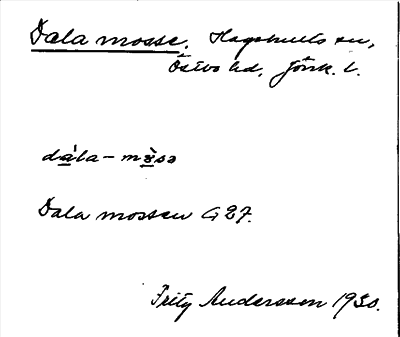 Dala mosse. Hagshults sn,
Östbo hd, Jönk. l.
dàla-mòsə
Dala mossen G 27.
Fritz Andersson 1930.